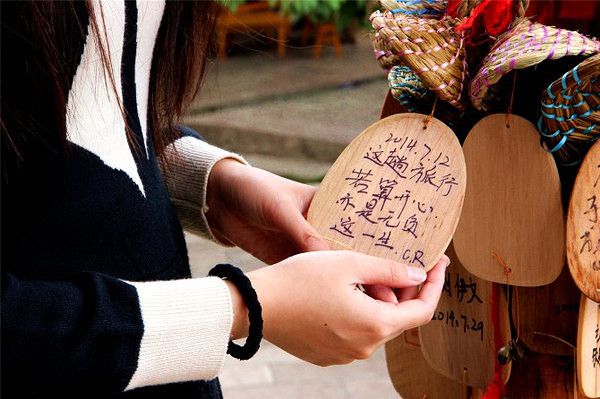 2014.7.12
这趟旅行
若算开心
亦是无负
这一生.C.R
2014.7.29